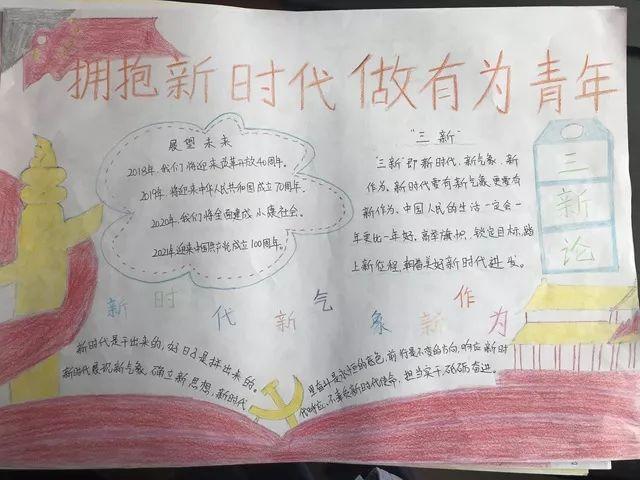 拥抱新时代 做有为青年
展望未来
2018年,我们将迎来改革开放40周年。
2019年,将迎来中华人民共和国成立70周年。
2020年,我们将全面建成小康社会。
2021年迎来中国共产党成立100周年。
“三新”
“三新”即新时代、新气象、新
作为。新时代要有新气象更要有
新作为、中国人民的生活一定会一
年更比一年好。高举旗帜、锁定目标、踏
上新征程,朝着美好新时代进发。
三
新
论
新时代新气象新作为
新时代是干出来的,好日子是拼出来的。
新时代展现新气象,确立新思想,新时代
里奋斗是永恒的底色,前行是不变的方向,响应新时
代呼应、不辜负新时代使命,担当实干,砥砺奋进。